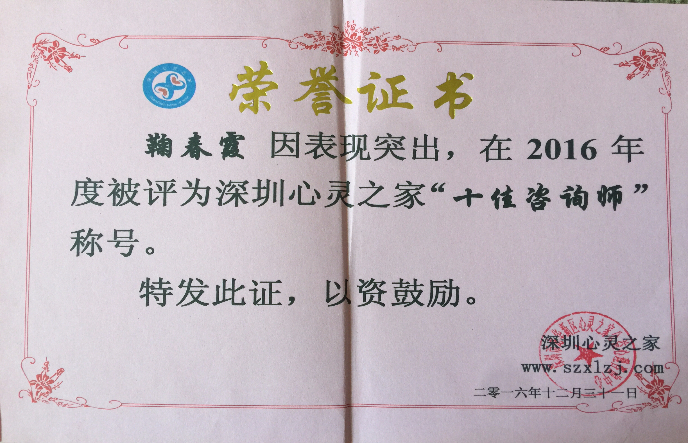 荣誉证书
鞠春霞 因表现突出，在 2016 年
度被评为深圳心灵之家“十佳咨询师”
称号。
特发此证，以资鼓励。
深圳心灵之家
www.szxlzj.com
二零一六年十二月三十一日